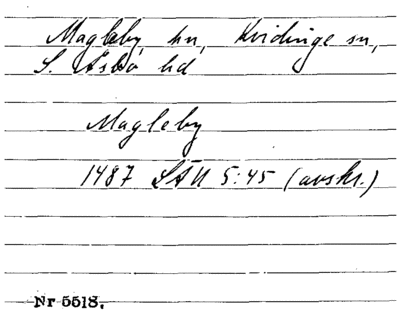 Magleby, hn, Kvidinge sn,
S. Åsbo hd
Magleby
1487 LÄU 5:45 (avskr.)
Nr 5518.